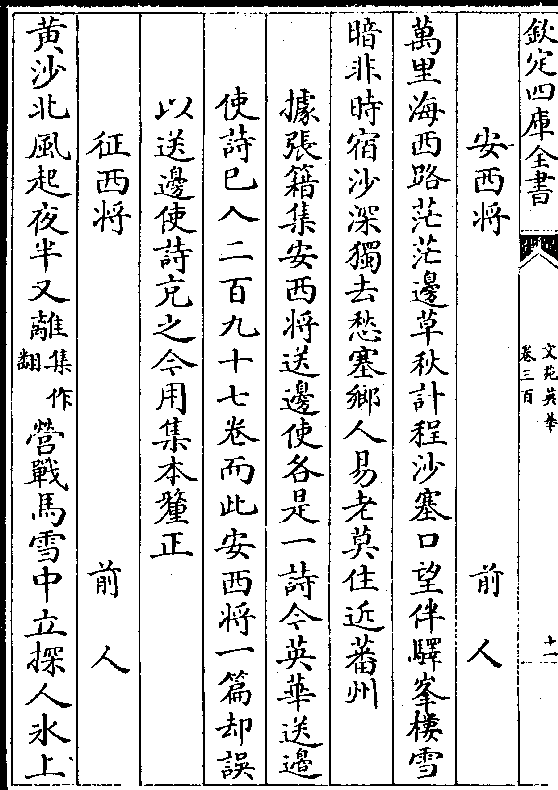 欽定四庫全書
文苑英華
卷三百
十一
安西将 前人
萬里海西路茫茫邊草秋計程沙塞口望伴驛峯棲雪
暗非時宿沙深獨去愁塞鄉人易老莫住近蕃州
據張籍集安西将送邊使各是一詩今英華送邊
使詩已入二百九十七卷而此安西将一篇却誤
以送邊使詩充之今用集本釐正
征西将 前人
黄沙北風起夜半又離集作翻營戰馬雪中立探人氷上